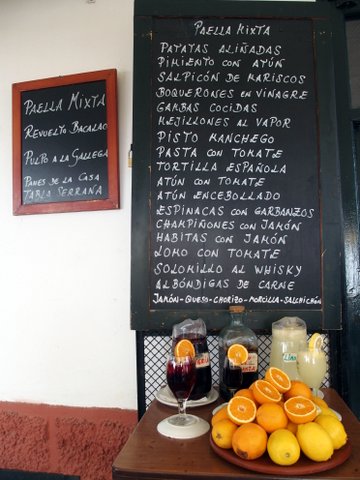 PAELLA MIXTA
REVUELTO BACALAO
PULPO A LA GALLEGA
PANES DE LA CASA
TABLA SERRANA
PAELLA MIXTA
PATATAS ALIÑADAS
PIMIENTO CON ATÚN
SALPICÓN DE MARISCOS
BOQUERONES EN VINAGRE
GAMBAS COCIDAS
MEJILLONES AL VAPOR
PISTO MANCHEGO
PASTA CON TOMATE
TORTILLA ESPAÑOLA
ATÚN CON TOMATE
ATÚN ENCEBOLLADO
ESPINACAS CON GARBANZOS
CHAMPIÑONES CON JAMÓN
HABITAS CON JAMÓN
LOMO CON TOMATE
SOLOMILLO AL WHISKY
ALBÓNDIGAS DE CARNE
JAMÓN-QUESO-CHORIZO-MORCILLA-SALCHICHÓN